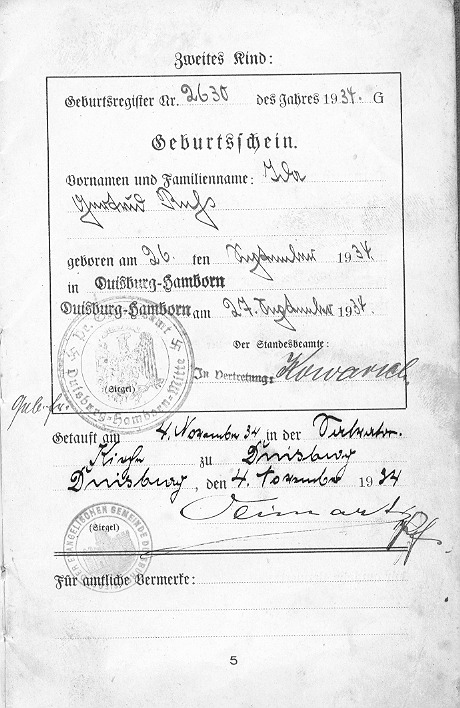 Zweites Kind:
Geburtsregister Nr. 2630 des Jahres 1934. G
Geburtsschein.
Vornamen und Familienname: Ida
Gertrud
geboren am 26. ten September 1934
in Duisburg-Hamborn
Duisburg-Hamborn am 27. September 1934.
Der Standesbeamte:
In Vertretung:
Duisburg-Hamborn-Mitte
(Siegel)
Getauft am 4. November 34 in der Salvator-
Kirche zu Duisburg
Duisburg, den 4. November 1934
EVANGELISCHEN GEMEINDE
(Siegel)
Für amtliche Vermerke:
5